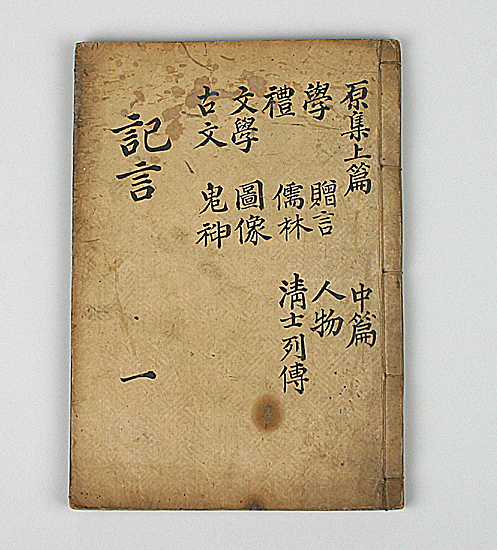 原集上篇 中篇
學 贈言 人物
禮 儒林 淸士列傳
文學 圖像
古文 鬼神
記言 一